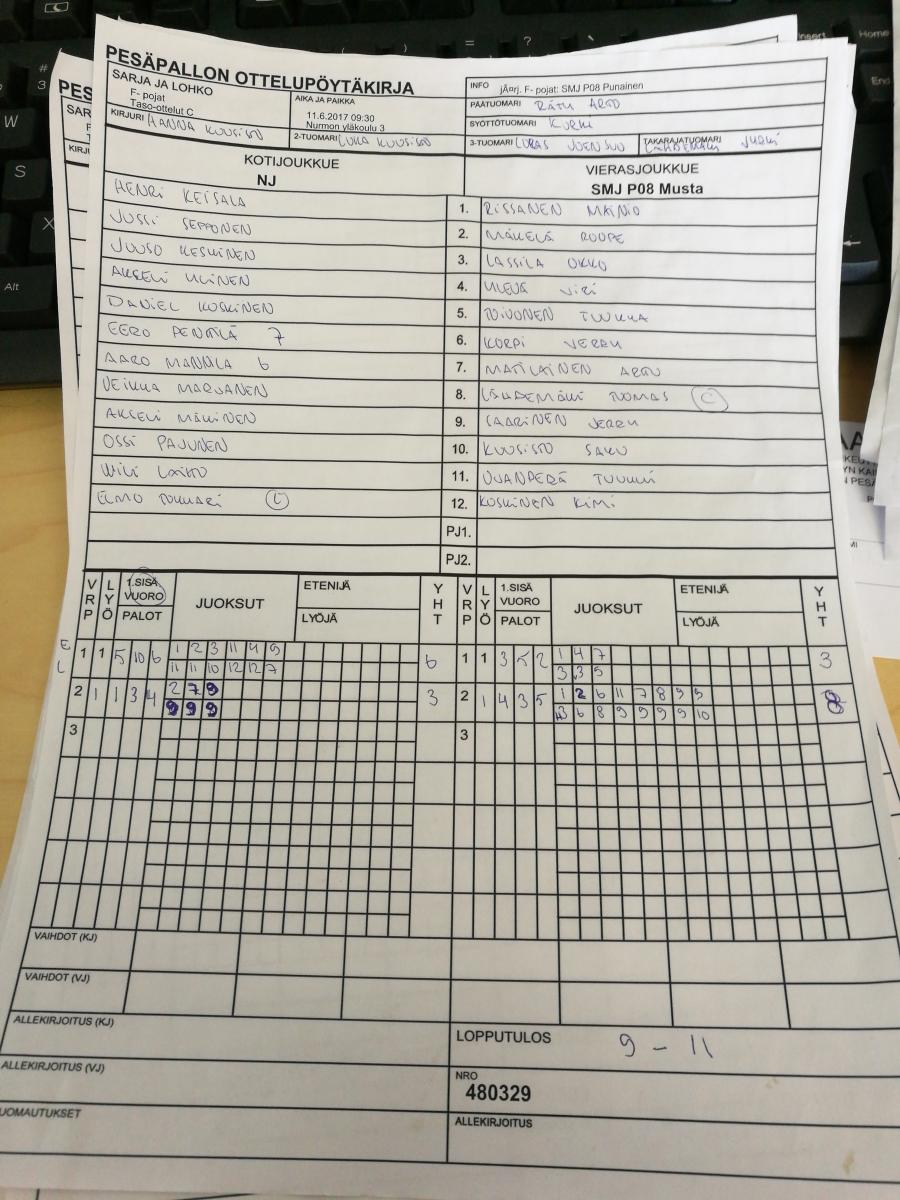 PESÄPALLON OTTELUPÖYTÄKIRJA
SARJA JA LOHKO
F- pojat
Taso-ottelut C
AIKA JA PAIKKA
11.6.2017 09:30
Nurmon yläkoulu 3
INFO jÄnrj. F- pojat: SMJ P08 Punainen
PÄÄTUOMARI RÄTY ARTO
SYÖTTÖTUOMARI KURKI
KIRJURI HANNA KUUSISTO
2-TUOMARI LUKA KUUSISTO
3-TUOMARI LUKAS JOENSUU
TAKARAJATUOMARI LÄHDEMÄKI JUKKI
KOTIJOUKKUE
NJ
VIERASJOUKKUE
SMJ P08 Musta
HENRI KEISALA
1. RISSANEN MAINIO
JUSSI SEPPONEN
2. MÄKELÄ ROOPE
JUUSO KESKINEN
3. LASSILA OKKO
AKSELI
4.
DANIEL KOSKINEN
5. TOIVONEN TUUKKA
EERO PENTTILÄ 7
6. KORPI JERRY
AARO MANNILA 6
7. MATILAINEN ARTU
VEIKKA MARJANEN
8. LÄHDEMÄKI TUOMAS C
AKSELI MÄKINEN
9. SAARINEN JERRY
OSSI PAJUNEN
10. KUUSISTO SAKU
WILI
11. TUUKKI
ELMO C
12. KOSKINEN KIMI
PJ1.
PJ2.
VRP LYÖ 1.SISÄ VUORO PALOT JUOKSUT ETENIJÄ LYÖJÄ YHT
VRP LYÖ 1.SISÄ VUORO PALOT JUOKSUT ETENIJÄ LYÖJÄ YHT
E 1 1 5 10 6 1 2 3 11 4 9 6
L 11 11 10 12 12 7
1 1 3 5 2 1 4 7 3
3 3 5
2 1 1 3 4 2 7 9 3
9 9 9
2 1 4 3 5 1 2 6 11 7 8 9 9 8
3 6 8 9 9 9 9 10
3
3
VAIHDOT (KJ)
VAIHDOT (VJ)
ALLEKIRJOITUS (KJ)
LOPPUTULOS 9 - 11
ALLEKIRJOITUS (VJ)
NRO
480329
UOMAUTUKSET
ALLEKIRJOITUS